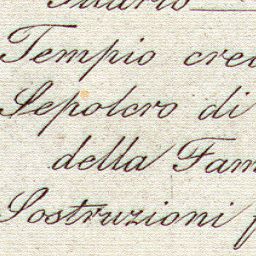 Tempio cre
Sepolcro di
della Fam
Sostruzioni